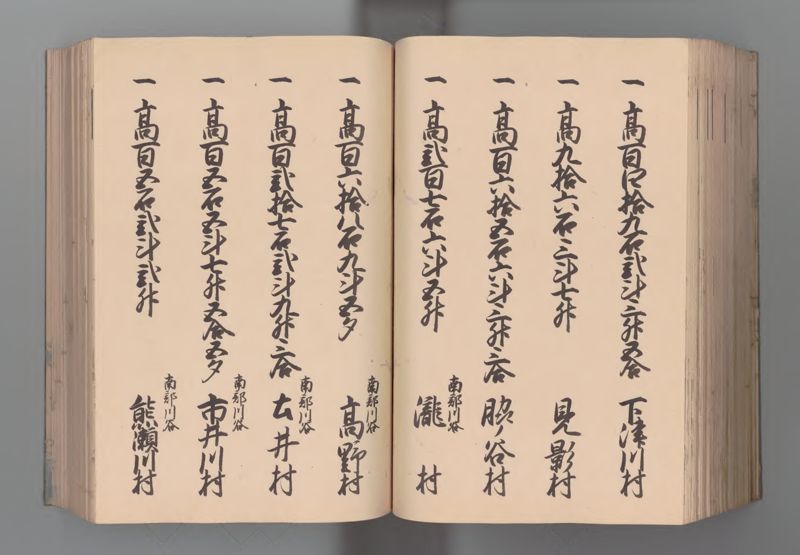 一 高百四拾九石弐斗三升五合 下津川村
一 高九拾六石三斗七升 見影村
一 高百六拾五石六斗三升三合 脇ノ谷村
一 高弐百七石六斗五升 南部川谷 瀧村
一 高百六拾八石九斗五夕 南部川谷 高野村
一 高百弐拾七石弐斗九升三合 南部川谷 土井村
一 高百五石五斗七升五合五夕 南部川谷 市井川村
一 高百五石弐斗弐升 南部川谷 熊瀬川村